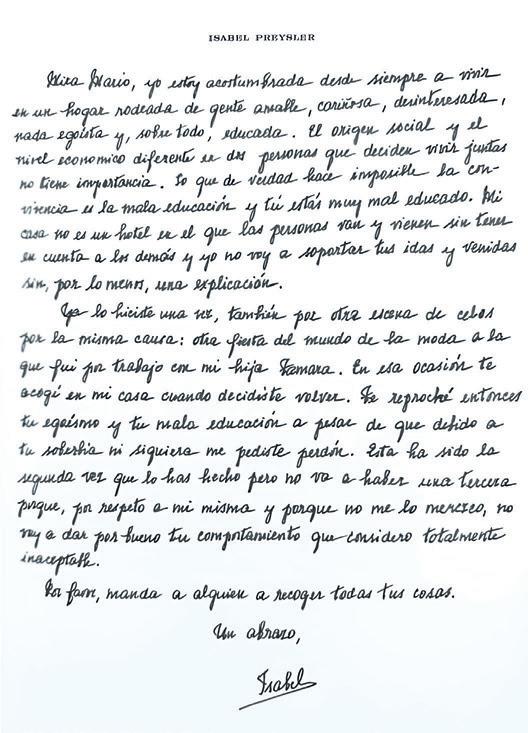 ISABEL PREYSLER
Mira Mario, yo estoy acostumbrada desde siempre a vivir
en un hogar rodeada de gente amable, cariñosa, desinteresada,
nada egoísta y, sobre todo, educada. El origen social y el
nivel economico diferente en dos personas que deciden vivir juntas
no tiene importancia. Lo que de verdad hace imposible la con-
vivencia es la mala educación y tú estás muy mal educado. Mi
casa no es un hotel en el que las personas van y vienen sin tener
en cuenta a los demás y yo no voy a soportar tus idas y venidas
sin, por lo menos, una explicación.
Ya lo hiciste una vez, también por otra escena de celos
por la misma causa: otra fiesta del mundo de la moda a la
que fui por trabajo con mi hija Tamara. En esa ocasión te
acogí en mi casa cuando decidiste volver. Te reproché entonces
tu egoísmo y tu mala educación a pesar de que debido a
tu soberbia ni siquiera me pediste perdón. Esta ha sido la
segunda vez que lo has hecho pero no va a haber una tercera
porque, por respeto a mi misma y porque no me lo merezco, no
voy a dar por bueno tu comportamiento que considero totalmente
inaceptable.
Por favor, manda a alguien a recoger todas tus cosas.
Un abrazo,
Isabel